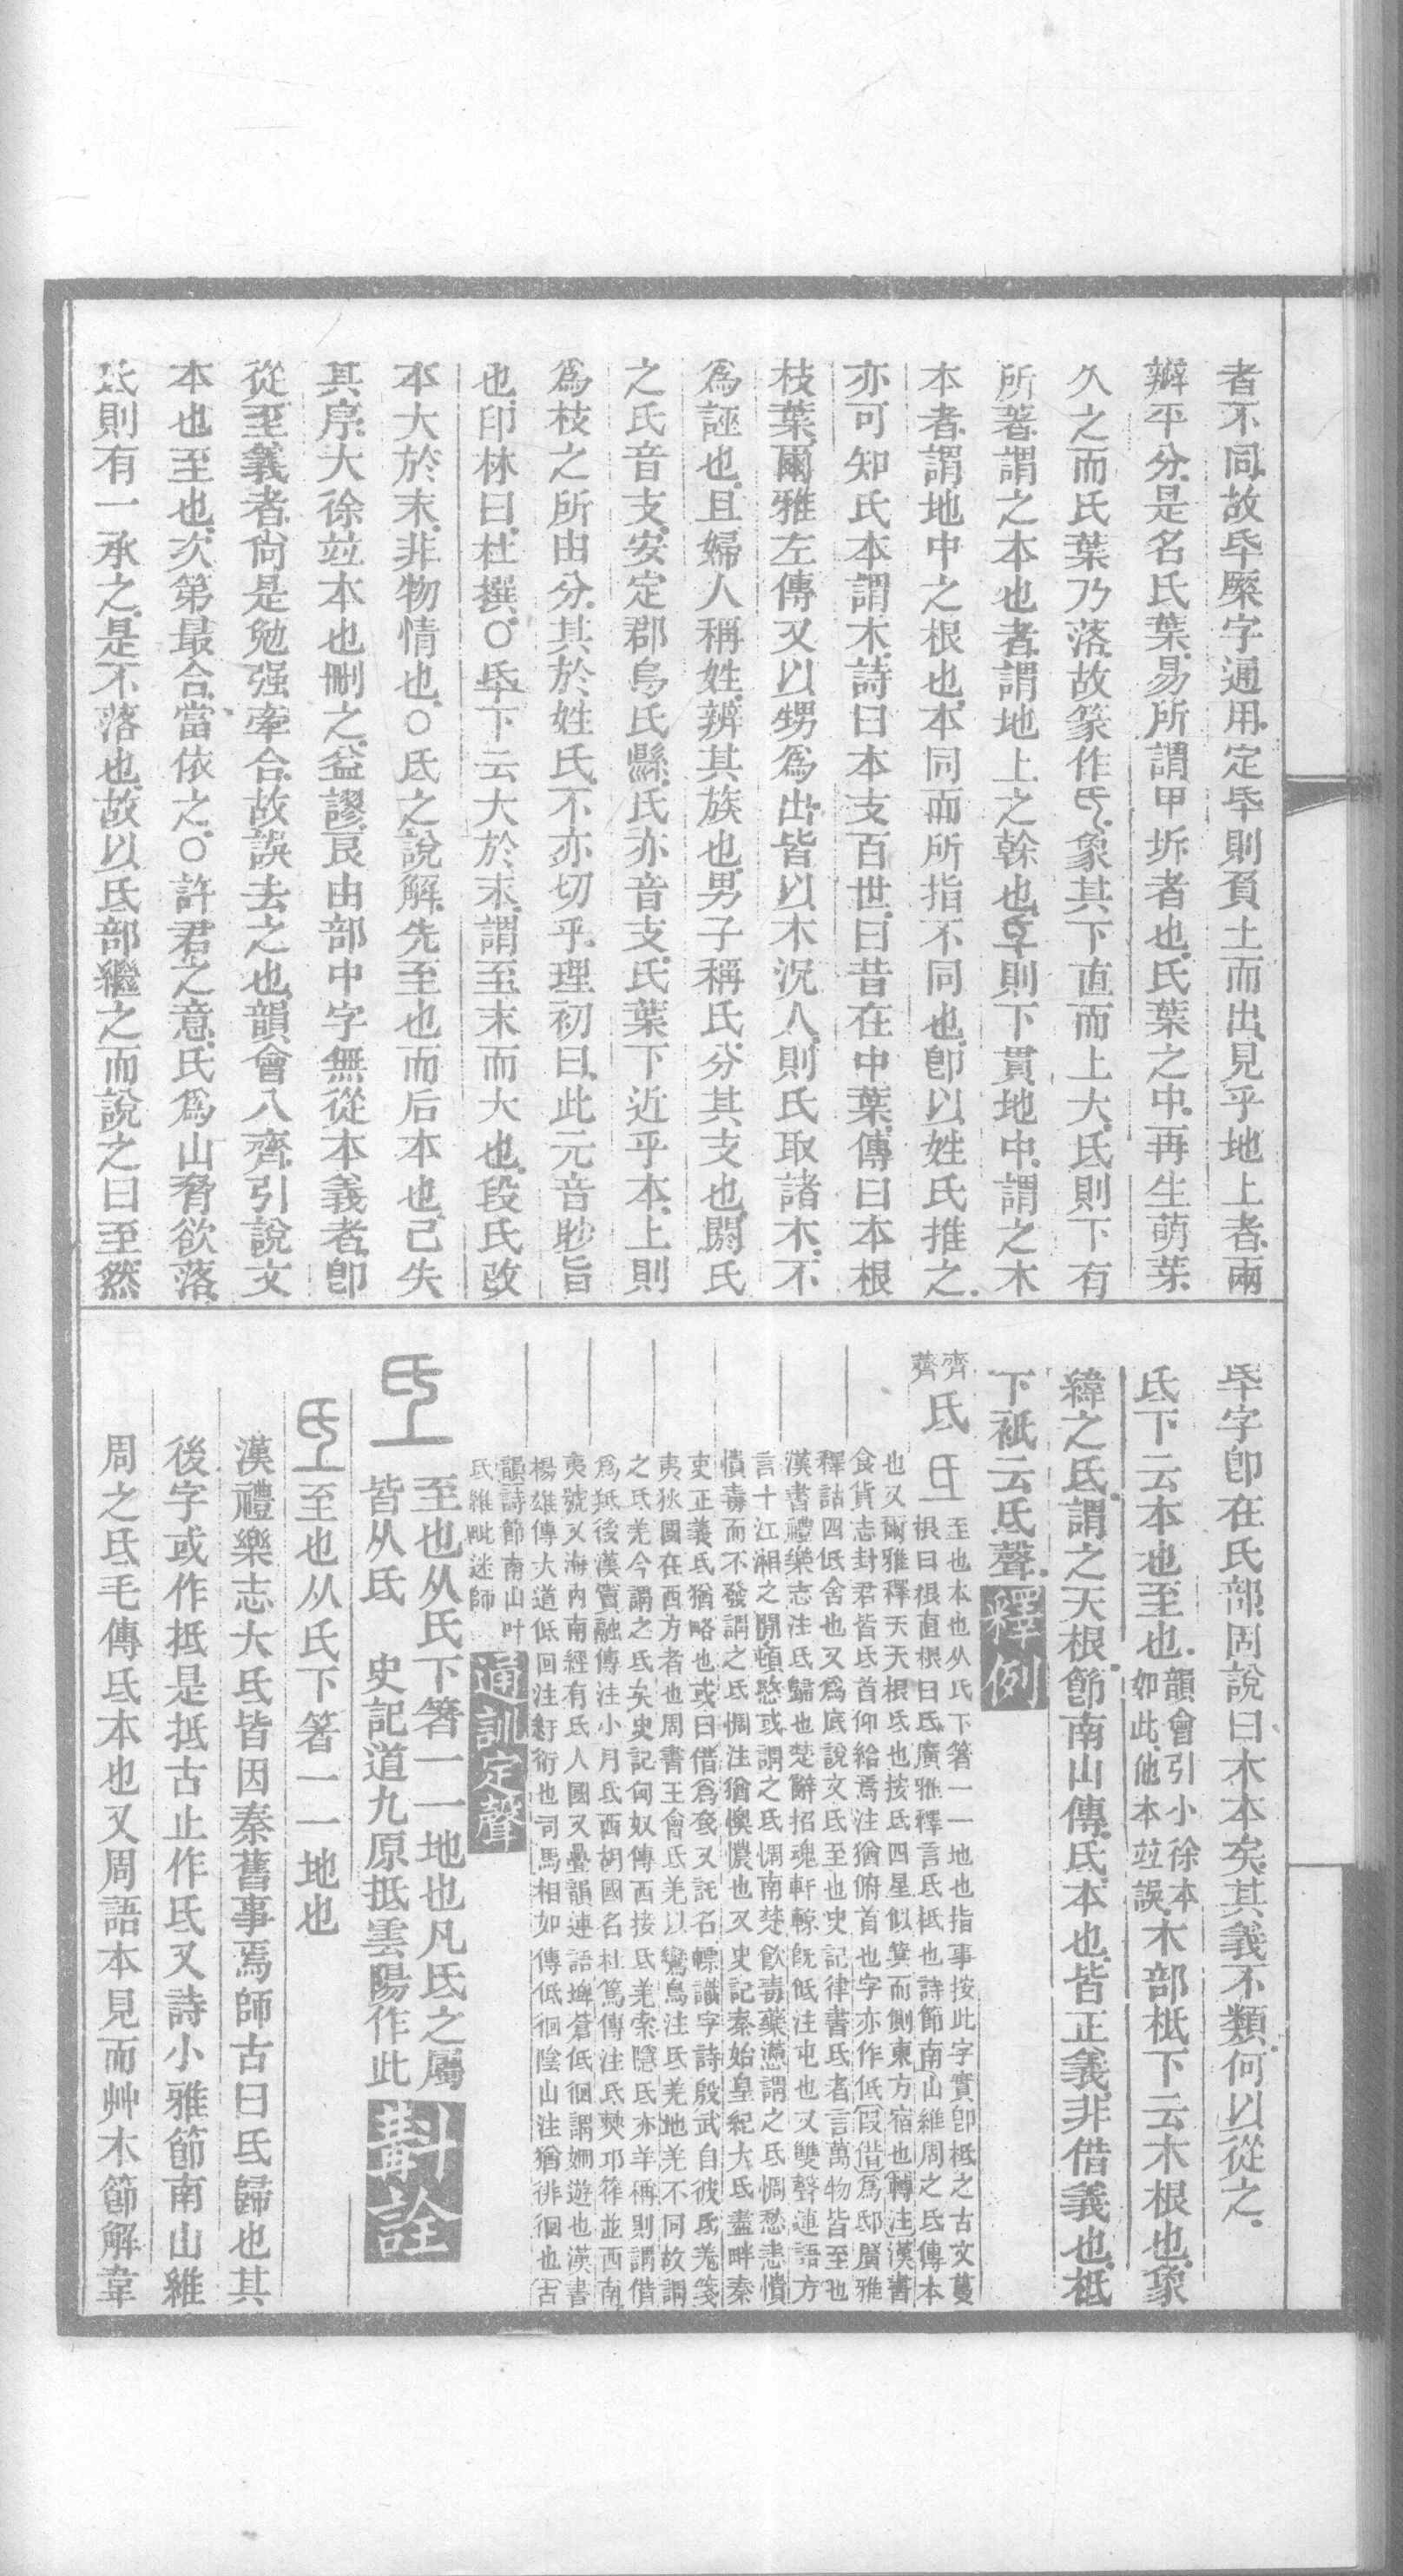 者不同故氒橜字通用定氒則負土而出見乎地上者兩
辦平分是名氏葉易所謂甲坼者也氏葉之中再生萌芽
久之而氏葉乃落故篆作氏象其下直而上大氐則下有
所著謂之本也者謂地上之榦也氒則下貫地中謂之木
本者謂地中之根也本同而所指不同也卽以姓氏推之
亦可知氏本謂木詩曰本支百世曰昔在中葉傳曰本根
枝葉爾雅左傳又以甥爲出皆以木況人則氏取諸木不
爲誣也且婦人稱姓辨其族也男子稱氏分其支也閼氏
之氏音支安定郡烏氏縣氏亦音支氏葉下近乎本上則
爲枝之所由分其於姓氏不亦切乎理初曰此元音眇旨
也印林曰杜撰○氒下云大於末謂至末而大也段氏改
本大於末非物情也○氐之說解先至也而后本也己失
其序大徐竝本也刪之益謬㠯由部中字無從本義者卽
從至義者尙是勉强牽合故誤去之也韻會八齊引說文
本也至也次第最合當依之○許君之意氏爲山脅欲落
氐則有一承之是不落也故以氐部繼之而說之曰至然
氒字卽在氏部固說曰木本矣其義不類何以從之
氐下云本也至也韻會引小徐本如此他本竝誤木部柢下云木根也象
緯之氐謂之天根節南山傳氐本也皆正義非借義也柢
下衹云氐聲釋例
薺齊氐
至也本也从氏下箸一一地也指事按此字實卽柢之古文蔓
根曰根直根曰氐廣雅釋言氐柢也詩節南山維周之氐傳本
也又爾雅釋天天根氐也按氐四星似箕而側東方宿也轉注漢書
食貨志封君皆氐首仰給焉注猶俯首也字亦作低叚借爲邸廣雅
釋詁四低舍也又爲底說文氐至也史記律書氐者言萬物皆至也
漢書禮樂志注氐歸也楚辭招魂軒輬旣低注屯也又雙聲連語方
言十江湘之閒頓愍或謂之氐惆南楚飮毒藥懣謂之氐惆愁恚憒
憒毒而不發謂之氐惆注猶懊憹也又史記秦始皇紀大氐盡畔秦
吏正義氐猶略也或曰借爲亥又託名幖識字詩殷武自彼氐羌箋
夷狄國在西方者也周書王會氐羌以鸞鳥注氐羌地羌不同故謂
之氐羌今謂之氐矣史記匈奴傳西接氐羌索隱氐亦羊稱則謂借
爲羝後漢竇融傳注小月氐西胡國名杜篤傳注氐僰邛筰並西南
夷號又海內南經有氐人國又疊韻連語埤蒼低徊謂姍遊也漢書
楊雄傳大道低回注紆衍也司馬相如傳低徊陰山注猶徘徊也古
韻詩節南山叶
氐維毗迷師通訓定聲
至也从氏下箸一一地也凡氐之屬
皆从氐 史記道九原抵雲陽作此斠詮
至也从氏下箸一一地也
漢禮樂志大氐皆因秦舊事焉師古曰氐歸也其
後字或作抵是抵古止作氐又詩小雅節南山維
周之氐毛傳氐本也又周語本見而艸木節解韋